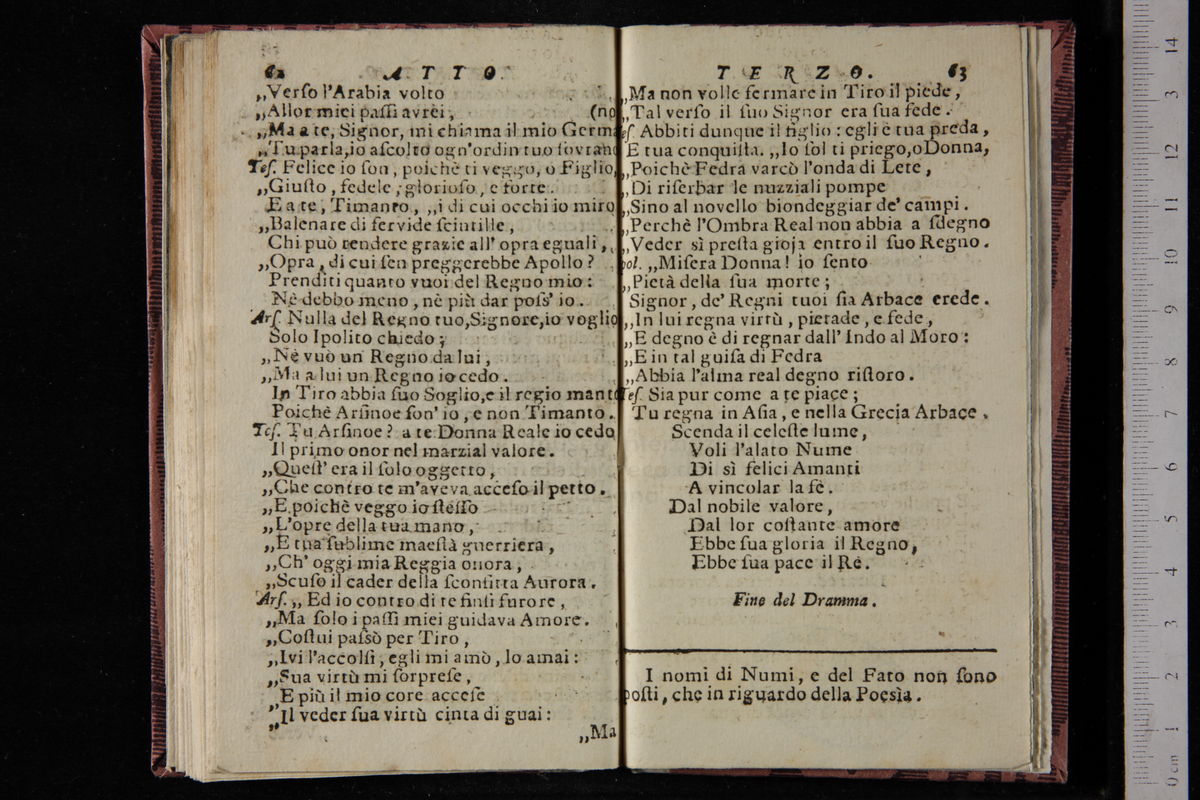 62 ATTO.
„Verſo l'Arabia volto
„Allor miei paſſi avrei,
(no
„Ma a te, Signor, mi chiama il mio Germa
„Tu parla, io aſcolto ogn'ordin tuo ſovrano
Teſ. Felice io ſon, poichè ti veggo, o Figlio,
„Giuſto, fedele, glorioſo, e forte.
E a te, Timanto, „i di cui occhi io miro
„Balenare di fervide ſcintille,
Chi può rendere grazie all' opra eguali,
„Opra, di cui ſen preggerebbe Apollo?
Prenditi quanto vuoi del Regno mio:
Nè debbo meno, nè più dar poſs' io.
Arſ. Nulla del Regno tuo, Signore, io voglio
Solo Ipolito chiedo;
„Nè vuò un Regno da lui,
„Ma a lui un Regno io cedo.
In Tiro abbia ſuo Soglio, e il regio manto
Poichè Arſinoe ſon' io, e non Timanto.
Teſ. Tu Arſinoe? a te Donna Reale io cedo
Il primo onor nel marzial valore.
„Queſt' era il ſolo oggetto,
„Che contro te m'aveva acceſo il petto.
„E poichè veggo io ſteſſo
„L'opre della tua mano,
„E tua ſublime maeſtà guerriera,
„Ch' oggi mia Reggia onora,
„Scuſo il cader della ſconfitta Aurora.
Arſ. „Ed io contro di te finſi furore,
„Ma ſolo i paſſi miei guidava Amore.
„Coſtui paſsò per Tiro,
„Ivi l'accolſi, egli mi amò, lo amai:
„Sua virtù mi ſorpreſe,
„E più il mio core acceſe
„Il veder ſua virtù cinta di guai:
„Ma
TERZO. 63
„Ma non volle fermare in Tiro il piede,
„Tal verſo il ſuo Signor era ſua fede.
eſ. Abbiti dunque il figlio: egli è tua preda,
E tua conquiſta. „Io ſol ti priego, o Donna,
„Poichè Fedra varcò l'onda di Lete,
„Di riſerbar le nuzziali pompe
„Sino al novello biondeggiar de' campi.
„Perchè l'Ombra Real non abbia a ſdegno
„Veder sì preſta gioja entro il ſuo Regno.
pol. „Miſera Donna! io ſento
„Pietà della ſua morte;
Signor, de' Regni tuoi ſia Arbace erede.
„In lui regna virtù, pietade, e fede,
„E degno è di regnar dall' Indo al Moro:
„E in tal guiſa di Fedra
„Abbia l'alma real degno riſtoro.
Teſ. Sia pur come a te piace;
Tu regna in Aſia, e nella Grecia Arbace.
Scenda il celeſte lume,
Voli l'alato Nume
Di sì felici Amanti
A vincolar la fè.
Dal nobile valore,
Dal lor coſtante amore
Ebbe ſua gloria il Regno,
Ebbe ſua pace il Rè.
Fine del Dramma.
I nomi di Numi, e del Fato non ſono
poſti, che in riguardo della Poesìa.
14
13
12
11
10
9
8
7
6
5
4
3
2
1
0 cm